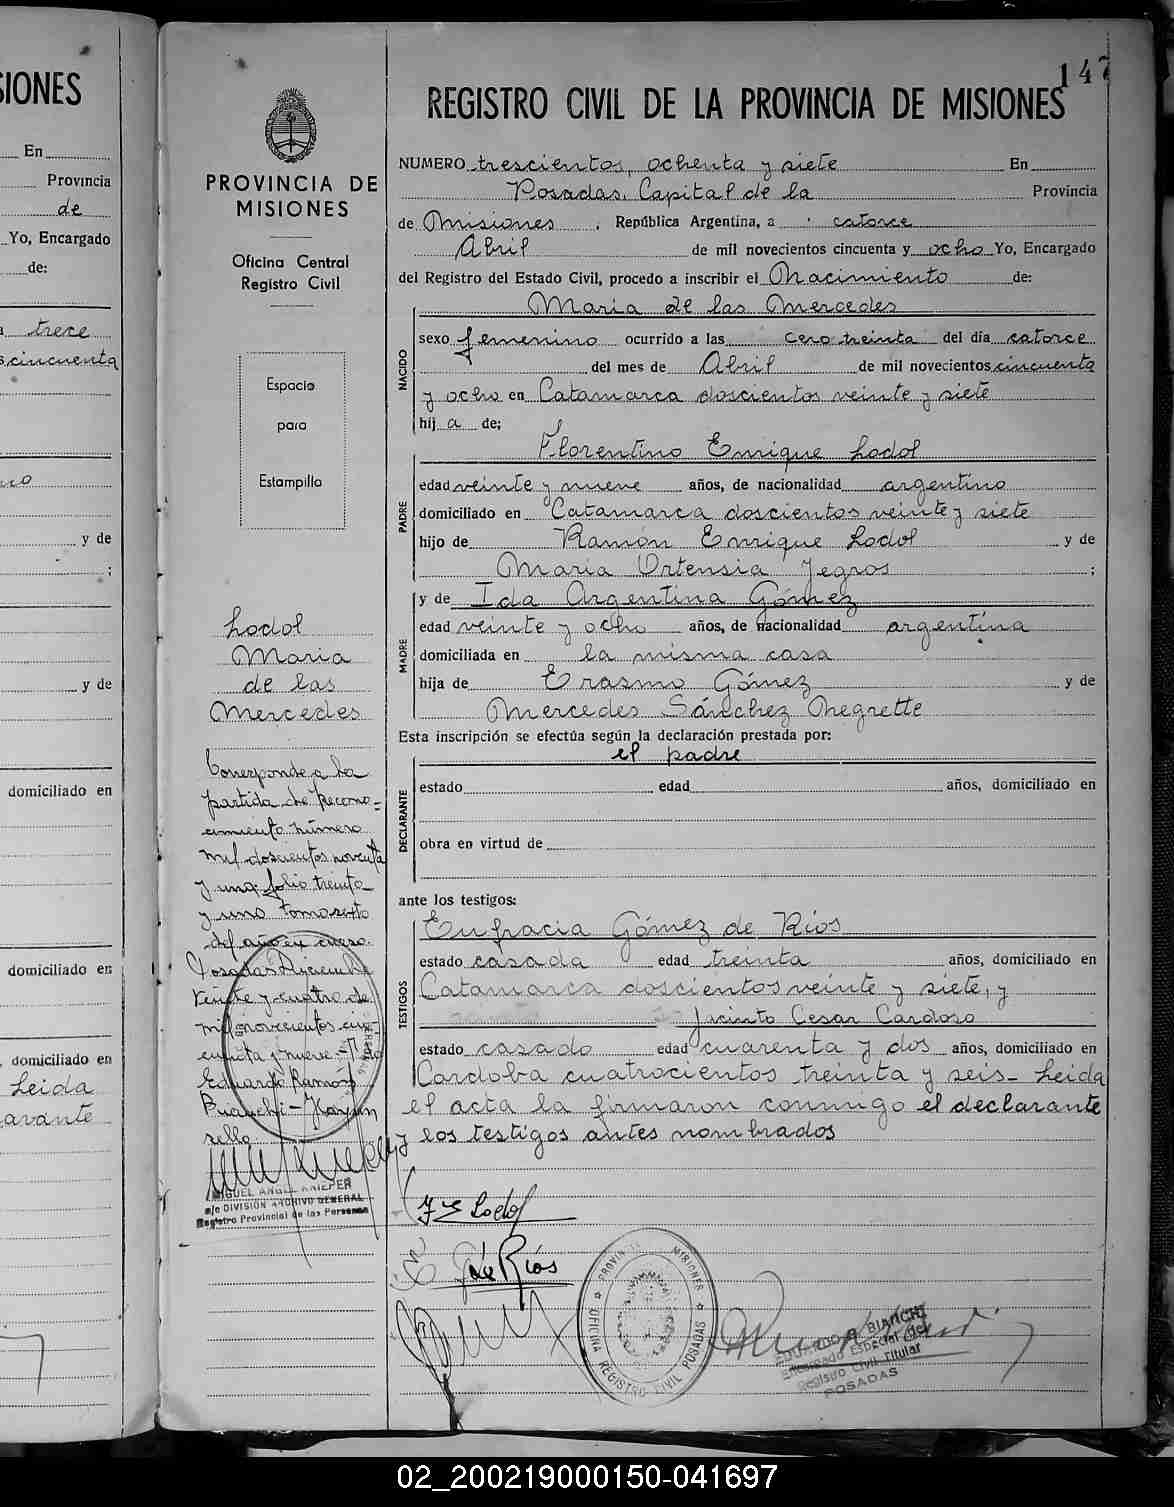 SIONES
En
Provincia
de
Yo, Encargado
de:
trece
cincuenta
y de
;
y de
domiciliado en
domiciliado en
, domiciliado en
Leida
avante
147
REGISTRO CIVIL DE LA PROVINCIA DE MISIONES
PROVINCIA DE
MISIONES
Oficina Central
Registro Civil
Espacio
para
Estampilla
Lodol
Maria
de las
Mercedes
Corresponde a la
partida de Recono-
cimiento número
mil doscientos noventa
y uno folio treinta
y uno tomo sexto
del año en curso.
Posadas Diciembre
veinte y cuatro de
mil novecientos cin-
cuenta y nueve.-
Eduardo Ramón
Bianchi -
sello
MIGUEL ANGEL KRIEPER
a/c DIVISION ARCHIVO GENERAL
Registro Provincial de las Personas
NUMERO trescientos, ochenta y siete En
Posadas, Capital de la Provincia
de Misiones, República Argentina, a catorce
Abril de mil novecientos cincuenta y ocho Yo, Encargado
del Registro del Estado Civil, procedo a inscribir el Nacimiento de:
Maria de las Mercedes
NACIDO
sexo femenino ocurrido a las cero treinta del día catorce
del mes de Abril de mil novecientos cincuenta
y ocho en Catamarca doscientos veinte y siete
hij a de;
Florentino Enrique Lodol
PADRE
edad veinte y nueve años, de nacionalidad argentino
domiciliado en Catamarca doscientos veinte y siete
hijo de Ramón Enrique Lodol y de
Maria Ortensia Yegros ;
MADRE
y de Ida Argentina Gómez
edad veinte y ocho años, de nacionalidad argentina
domiciliada en la misma casa
hija de Erasmo Gómez y de
Mercedes Sánchez Negrette
Esta inscripción se efectúa según la declaración prestada por:
el padre
DECLARANTE
estado edad años, domiciliado en
obra en virtud de
ante los testigos:
TESTIGOS
Eufracia Gómez de Ríos
estado casada edad treinta años, domiciliado en
Catamarca doscientos veinte y siete, y
Jacinto Cesar Cardoso
estado casado edad cuarenta y dos años, domiciliado en
Cardoba cuatrocientos treinta y seis- Leida
el acta la firmaron conmigo el declarante
y los testigos antes nombrados
Lodol
G de Ríos
PROVINCIA MISIONES
OFICINA REGISTRO CIVIL POSADAS
EDUARDO R. BIANCHI
Encargado Especial del
Registro Civil Titular
POSADAS
02_200219000150-041697